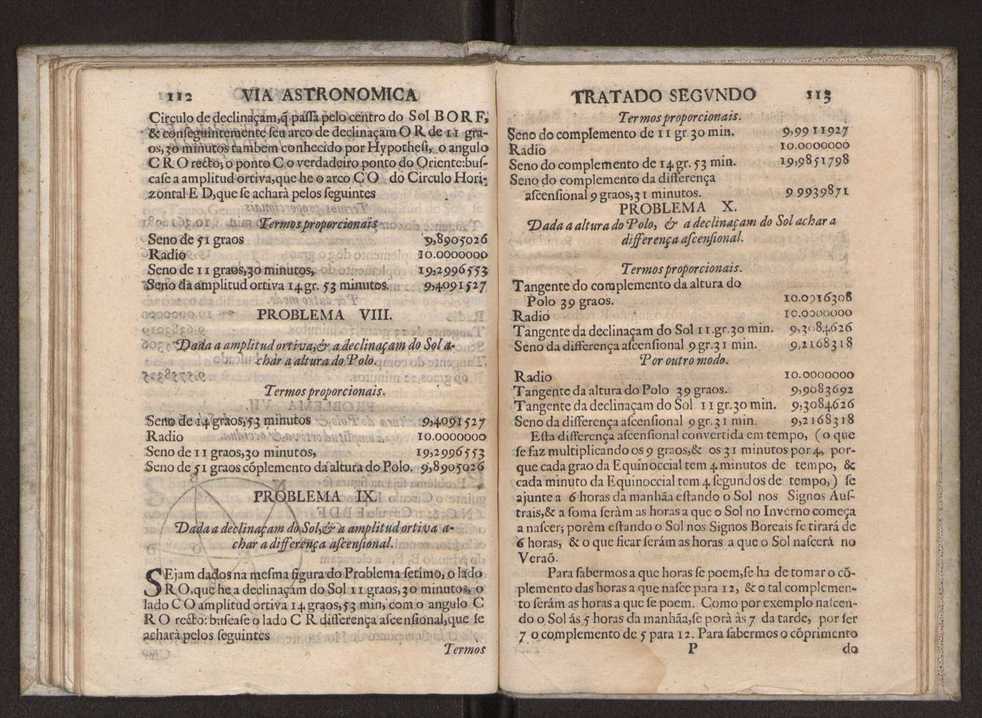 112 VIA ASTRONOMICA
Circulo de declinaçam,q̃ passa pelo centro do Sol B O R F,
& conseguintemente seu arco de declinaçam O R de 11 gra-
os,30 minutos tambem conhecido por Hypothesi, o angulo
C R O recto, o ponto C o verdadeiro ponto do Oriente:bus-
case a amplitud ortiva,que he o arco C O do Circulo Hori-
zontal E D,que se acharà pelos seguintes
Termos proporcionais
Seno de 51 graos 9,8905026
Radio 10.0000000
Seno de 11 graos,30 minutos, 19,2996553
Seno da amplitud ortiva 14 gr. 53 minutos. 9,4091527
PROBLEMA VIII.
Dada a amplitud ortiva,& a declinaçam do Sol a-
char a altura do Polo.
Termos proporcionais.
Seno de 14 graos,53 minutos 9,4091527
Radio 10.0000000
Seno de 11 graos,30 minutos, 19,2996553
Seno de 51 graos cõplemento da altura do Polo. 9,8905026
PROBLEMA IX.
Dada a declinaçam do Sol,& a amplitud ortiva a-
char a differença ascensional.
SEjam dados na mesma figura do Problema setimo, o lado
R O,que he a declinaçam do Sol 11 graos,30 minutos, o
lado C O amplitud ortiva 14 graos,53 min, com o angulo C
R O recto: buscase o lado C R differença ascensional,que se
acharà pelos seguintes
Termos
TRATADO SEGVNDO 113
Termos proporcionais.
Seno do complemento de 11 gr. 30 min. 9,9911927
Radio 10.0000000
Seno do complemento de 14 gr. 53 min. 19,9851798
Seno do complemento da differença
ascensional 9 graos,31 minutos. 9 9939871
PROBLEMA X.
Dada a altura do Polo, & a declinaçam do Sol achar a
differença ascensional.
Termos proporcionais.
Tangente do complemento da altura do
Polo 39 graos. 10.0916308
Radio 10.0000000
Tangente da declinaçam do Sol 11.gr.30 min. 9,3084626
Seno da differença ascensional 9 gr.31 min. 9,2168318
Por outro modo.
Radio 10.0000000
Tangente da altura do Polo 39 graos. 9,9083692
Tangente da declinaçam do Sol 11 gr.30 min. 9,3084626
Seno da differença ascensional 9 gr.31 min. 9,2168318
Esta differença ascensional convertida em tempo, (o que
se faz multiplicando os 9 graos,& os 31 minutos por 4, por-
que cada grao da Equinoccial tem 4 minutos de tempo, &
cada minuto da Equinoccial tem 4 segundos de tempo,) se
ajunte a 6 horas da manhãa estando o Sol nos Signos Aus-
trais,& a soma seràm as horas a que o Sol no Inverno começa
a nascer; porèm estando o Sol nos Signos Boreais se tirará de
6 horas, & o que ficar seràm as horas a que o Sol nascerà no
Veraõ.
Para sabermos a que horas se poem,se ha de tomar o cõ-
plemento das horas a que nasce para 12, & o tal complemen-
to seràm as horas a que se poem. Como por exemplo nascen-
do o Sol ás 5 horas da manhãa,se porà às 7 da tarde, por ser
7 o complemento de 5 para 12. Para sabermos o cõprimento
P do